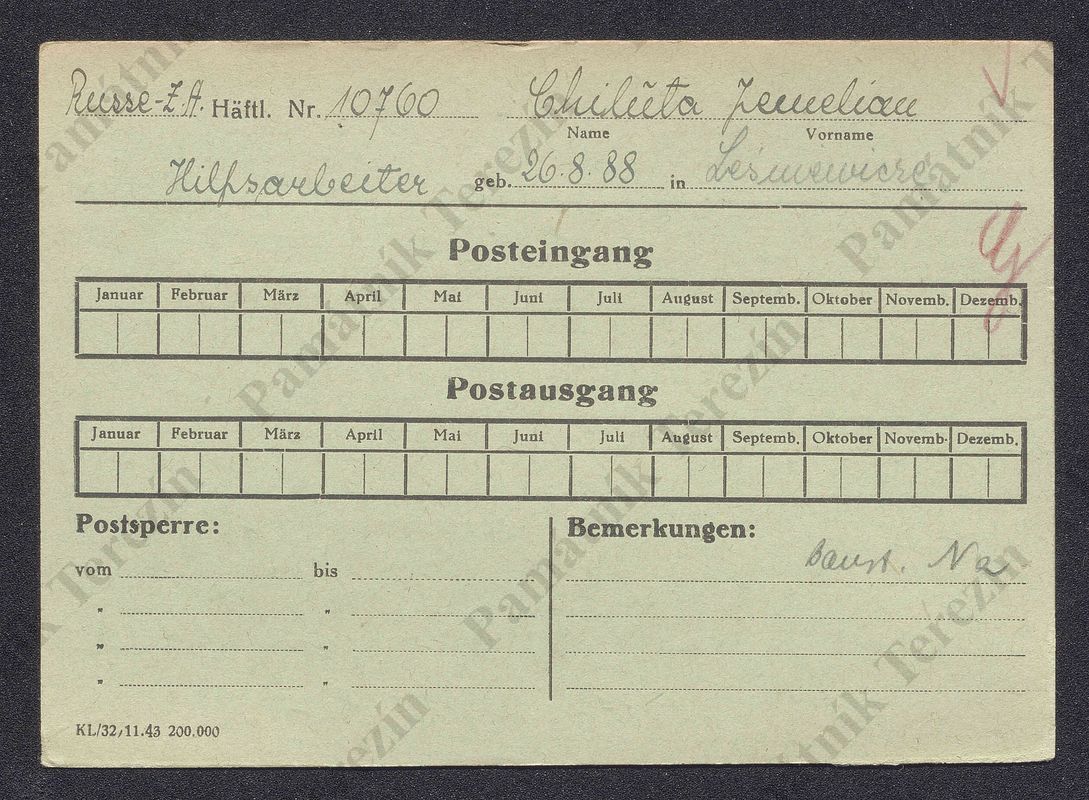 Russe-Z.A. Häftl. Nr. 10760 Chilŭta Jemelian
Name Vorname
Hilfsarbeiter geb. 26.8.88 in
Posteingang
Januar Februar März April Mai Juni Juli August Septemb. Oktober Novemb. Dezemb.
Postausgang
Januar Februar März April Mai Juni Juli August Septemb. Oktober Novemb. Dezemb.
Postsperre: Bemerkungen:
Na
vom bis
" "
" "
" "
KL/32/11.43 200.000
Památník Terezín